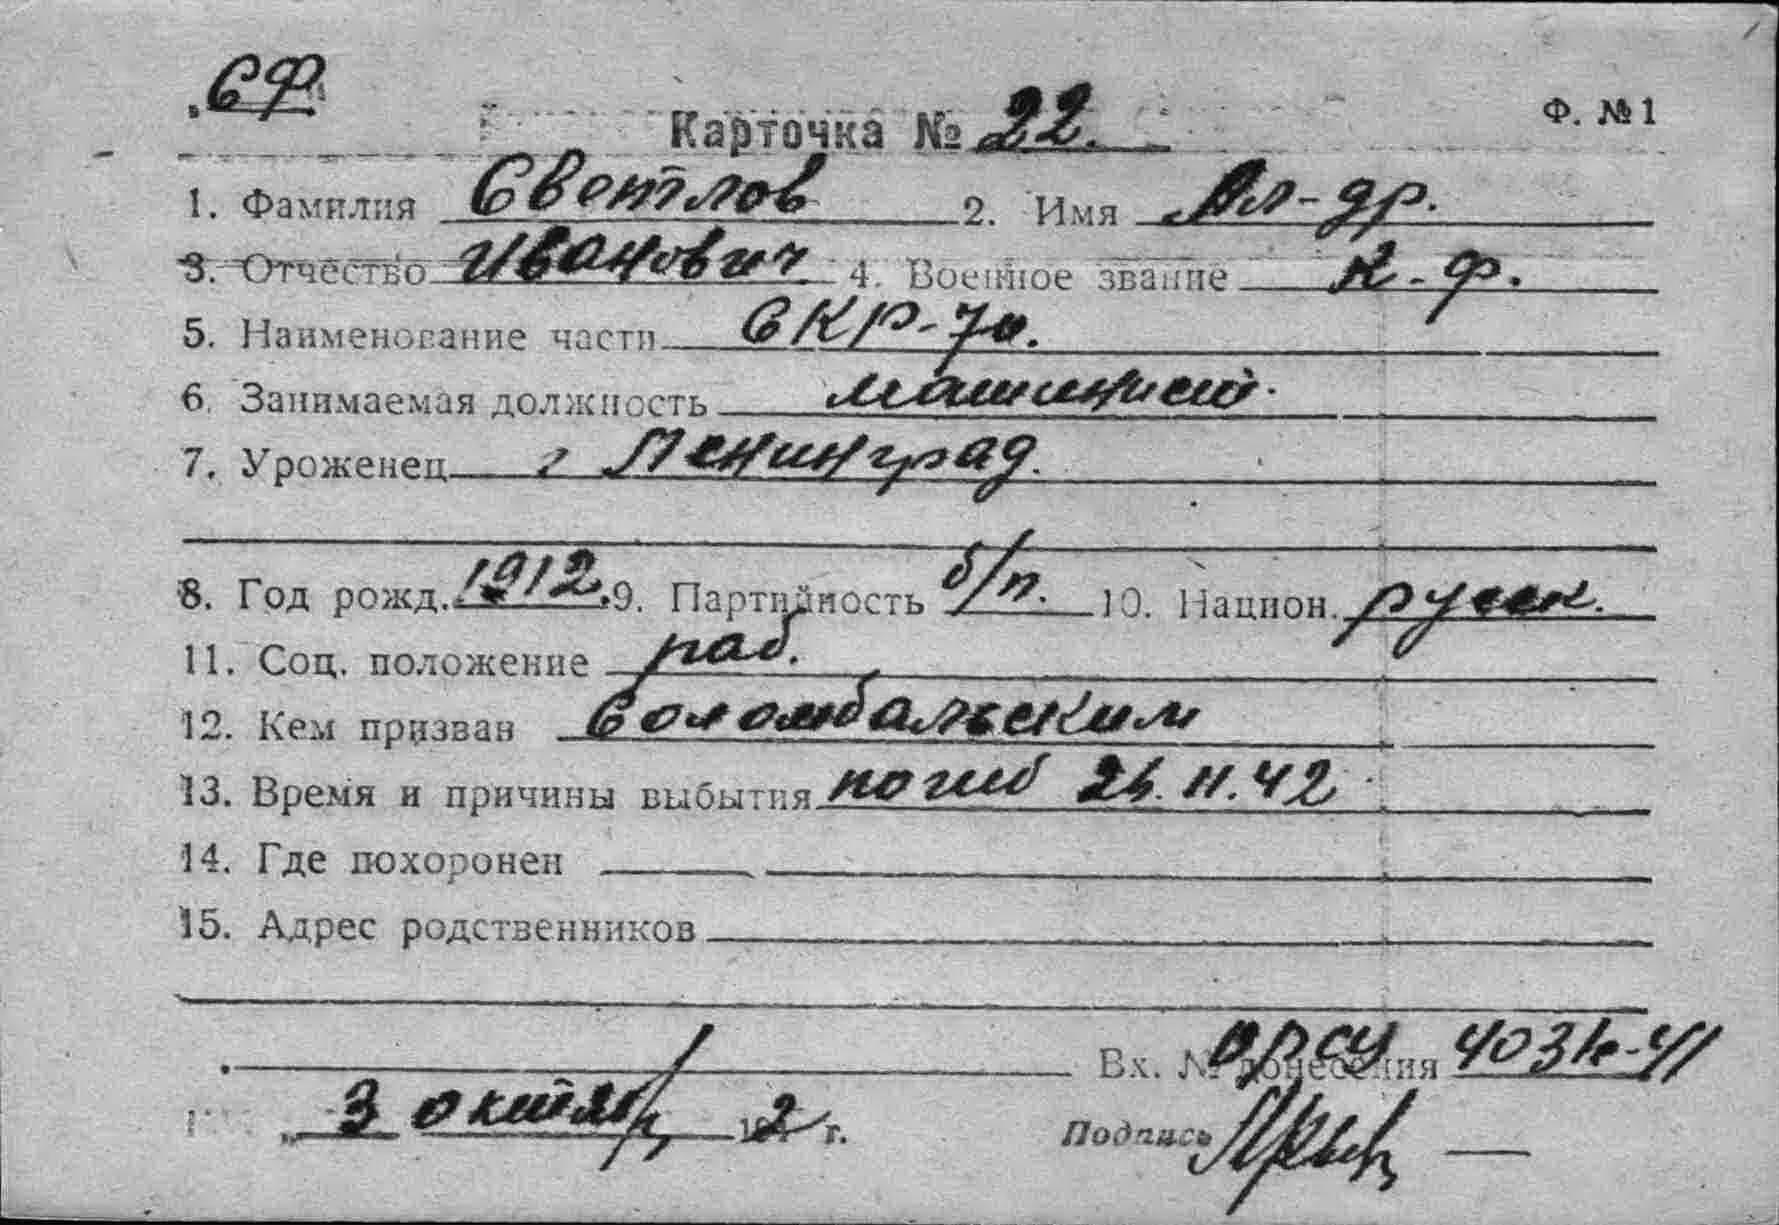 СФ
Карточка № 22. Ф. № 1
1. Фамилия Светлов 2. Имя Ал-др.
3. Отчество Иванович 4. Военное звание К-ф.
5. Наименование части СКР-70.
6. Занимаемая должность машинист.
7. Уроженец г Ленинград.
8. Год рожд. 1912. 9. Партийность б/п. 10. Национ. русск.
11. Соц. положение раб.
12. Кем призван Соломбальским
13. Время и причины выбытия погиб 11.42
14. Где похоронен
15. Адрес родственников
Вх. № донесения ОРСУ
3 октября 2 г.
Подпись